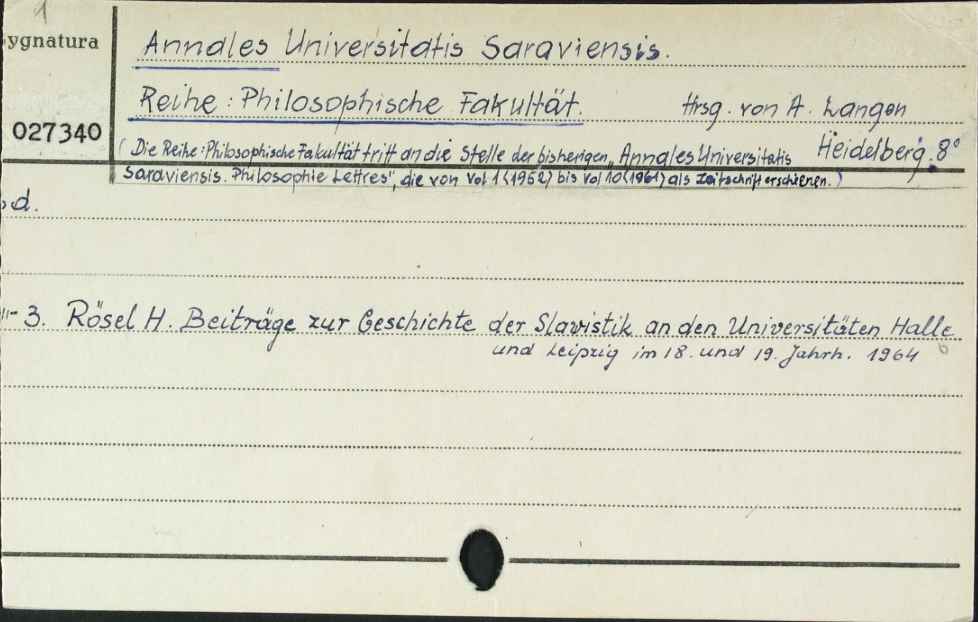 1
ygnatura
Annales Universitatis Saraviensis.
Reihe: Philosophische Fakultät. Hrsg. von A. Langen
027340
Heidelberg. 8°
(Die Reihe: Philosophische Fakultät tritt an die Stelle der bisherigen „Annales Universitatis
Saraviensis. Philosophie Lettres", die von Vol 1 (1952) bis Vol 10 (1961) als Zeitschrift erschienen.)
d.
3. Rösel H. Beiträge zur Geschichte der Slawistik an den Universitäten Halle
und Leipzig im 18. und 19. Jahrh. 1964
6